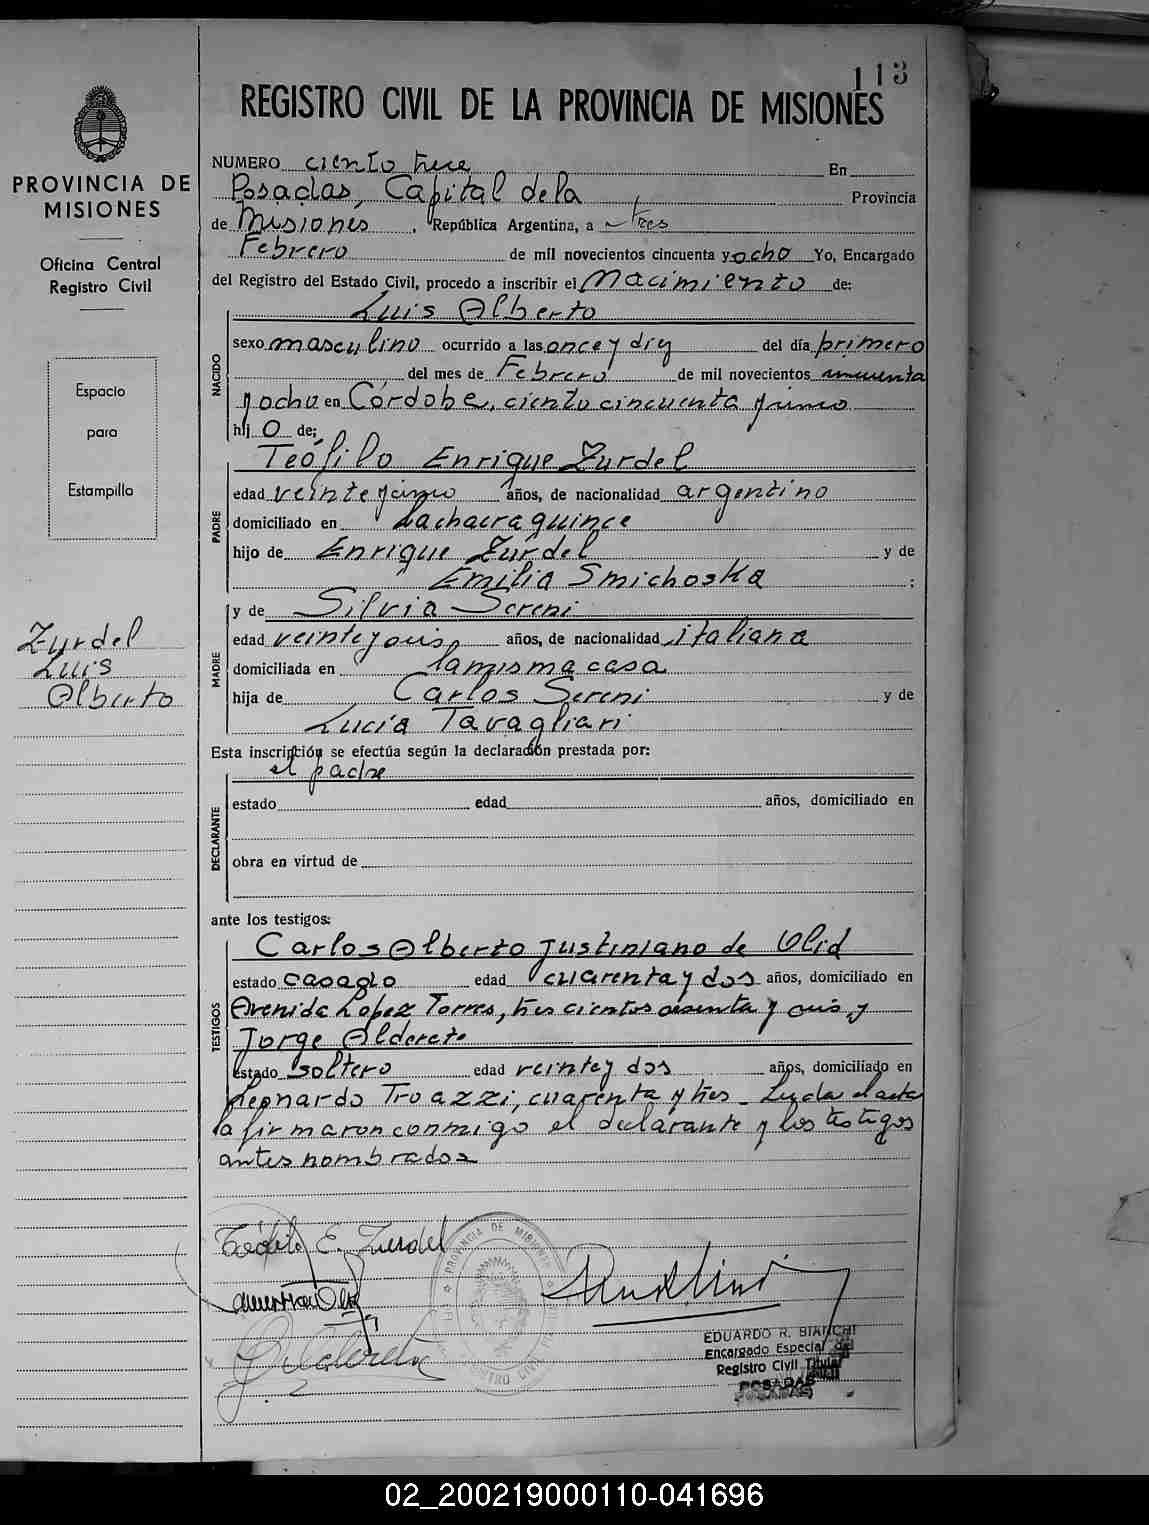 113
REGISTRO CIVIL DE LA PROVINCIA DE MISIONES
PROVINCIA DE
MISIONES
Oficina Central
Registro Civil
Espacio
para
Estampilla
Zurdel
Luis
Alberto
NUMERO ciento trece En
Posadas, Capital de la Provincia
de Misiones, República Argentina, a tres
Febrero de mil novecientos cincuenta y ocho Yo, Encargado
del Registro del Estado Civil, procedo a inscribir el Nacimiento de:
Luis Alberto
NACIDO
sexo masculino ocurrido a las once y diez del día primero
del mes de Febrero de mil novecientos cincuenta
y ocho en Córdoba, ciento cincuenta y cinco
hij o de;
Teófilo Enrique Zurdel
PADRE
edad veinte y cinco años, de nacionalidad argentino
domiciliado en La chacra quince
hijo de Enrique Zurdel y de
Emilia Smichoska ;
MADRE
y de Silvia Sereni
edad veinte y seis años, de nacionalidad italiana
domiciliada en la misma casa
hija de Carlos Sereni y de
Lucia Tavagliari
Esta inscripción se efectúa según la declaración prestada por:
el padre
DECLARANTE
estado edad años, domiciliado en
obra en virtud de
ante los testigos:
TESTIGOS
Carlos Alberto Justiniano de Olid
estado casado edad cuarenta y dos años, domiciliado en
Avenida Lopez Torres, tres cientos y seis, y
Jorge Alderete
estado soltero edad veinte y dos años, domiciliado en
Leonardo Troazzi, cuarenta y tres - Leida el acta
la firmaron conmigo el declarante y los testigos
antes nombrados
Teófilo E. Zurdel
PROVINCIA DE MISIONES
REGISTRO CIVIL
EDUARDO R. BIANCHI
Encargado Especial del
Registro Civil Titular
POSADAS
02_200219000110-041696